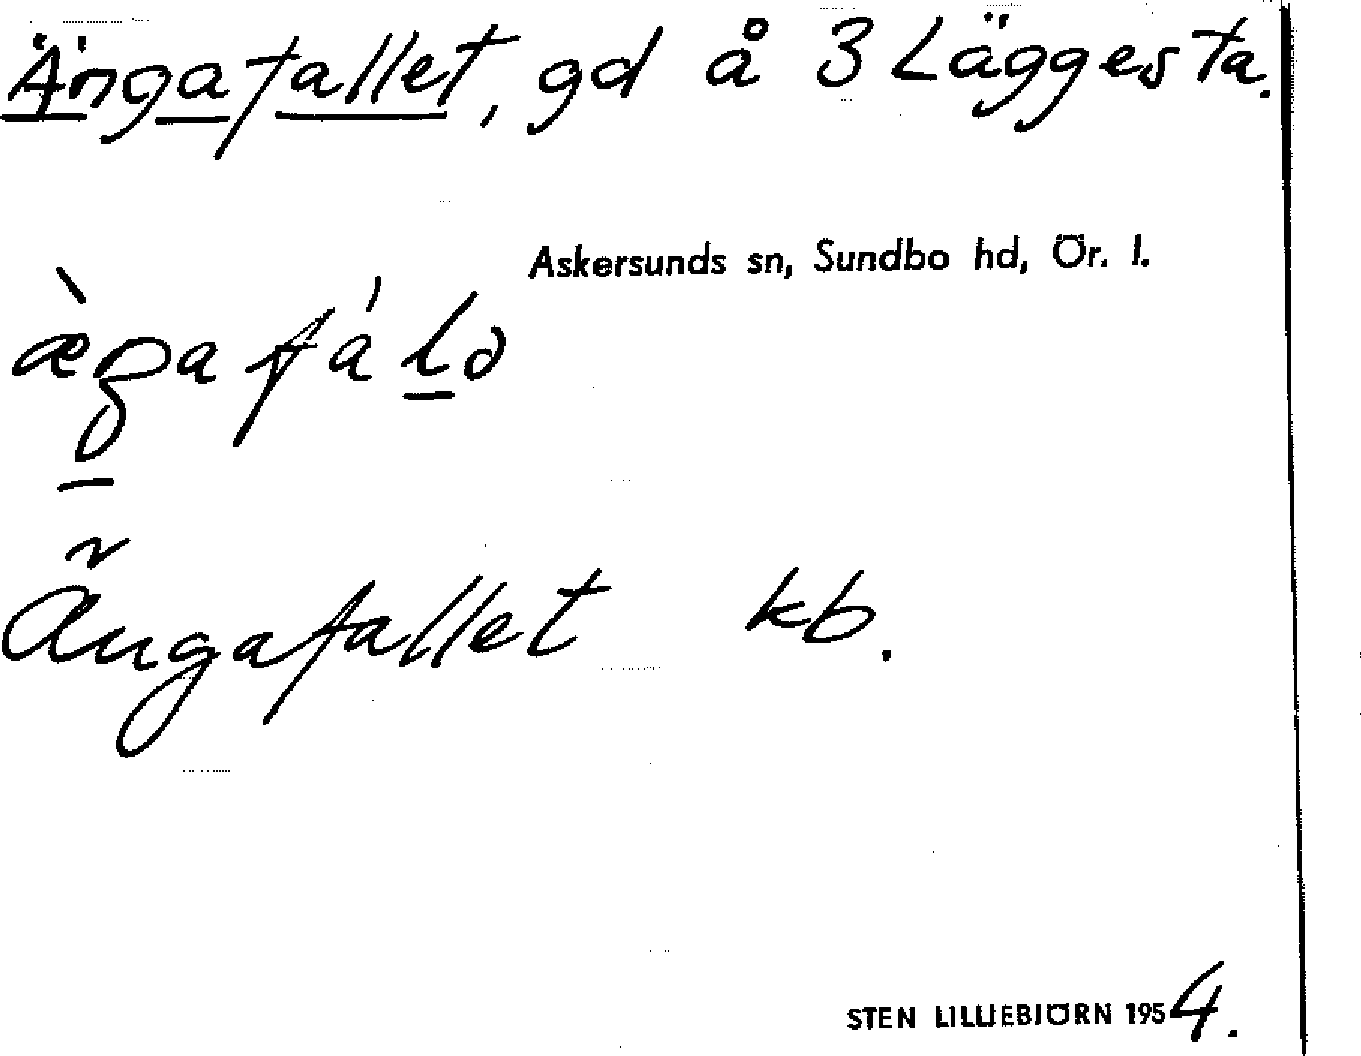 Ängafallet, gd å 3 Läggesta.
Askersunds sn, Sundbo hd, Ör. l.
Ängafallet kb.
STEN LILLIEBJÖRN 1954.